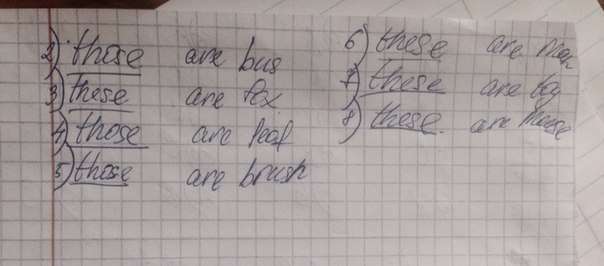 2) those are bus
3) These are fox
4) those are leaf
5) those are brush
6) these are men
7) these are boy
8) these are